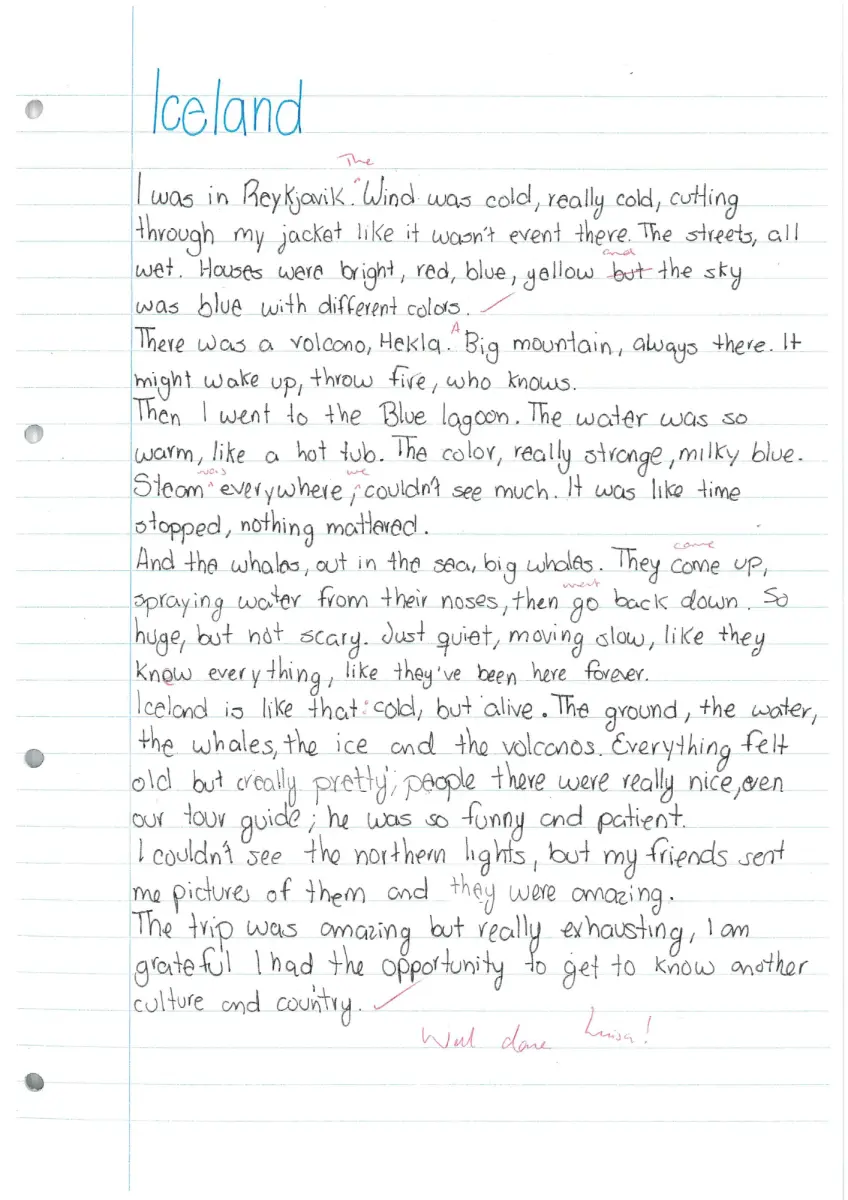 Iceland
The
I was in Reykjavik. Wind was cold, really cold, cutting
through my jacket like it wasn't event there. The streets, all
and
wet. Houses were bright, red, blue, yellow but the sky
was blue with different colors.
A
There was a volcano, Hekla. Big mountain, always there. It
might wake up, throw fire, who knows.
Then I went to the Blue lagoon. The water was so
warm, like a hot tub. The color, really strange, milky blue.
was we
Steam everywhere, couldn't see much. It was like time
stopped, nothing mattered.
came
And the whales, out in the sea, big whales. They come up,
went
spraying water from their noses, then go back down. So
huge, but not scary. Just quiet, moving slow, like they
know everything, like they've been here forever.
Iceland is like that: cold, but alive. The ground, the water,
the whales, the ice and the volcanos. Everything felt
old but really pretty; people there were really nice, even
our tour guide; he was so funny and patient.
I couldn't see the northern lights, but my friends sent
me pictures of them and they were amazing.
The trip was amazing but really exhausting, I am
grateful I had the opportunity to get to know another
culture and country.
Well done Luisa!